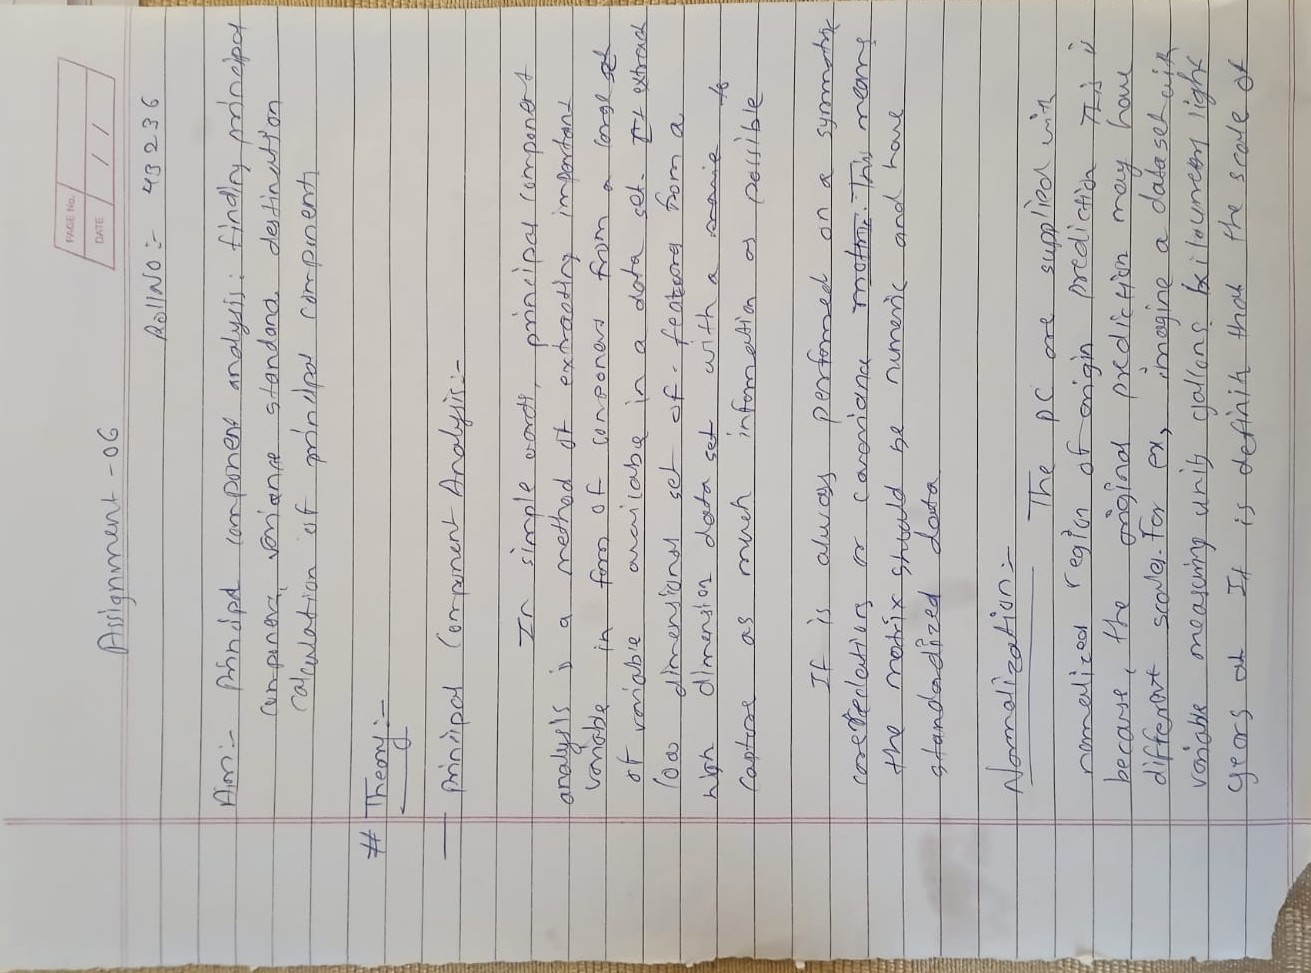 PAGE No.
DATE / /
Assignment - 06
Roll NO :- 43236
Aim :- Principal component analysis: finding principal
component, variance standard destination
calculation of principal component
# Theory :-
— principal Component Analysis :-
In simple words, principal component
analysis is a method of extracting important
variable in form of component from a large set
of variable available in a data set. It extract
low dimensional set of features from a
high dimension data set with a to
capture as much information as possible
It is always performed on a symmetric
correlation or covariance matrix. This means
the matrix should be numeric and have
standardized data
Normalization :-
The PC are supplied with
normalized region of origin prediction This is
because, the original prediction may have
different scales. For ex, imagine a data set with
variable measuring units gallons, light
years at It is definit that the scale of